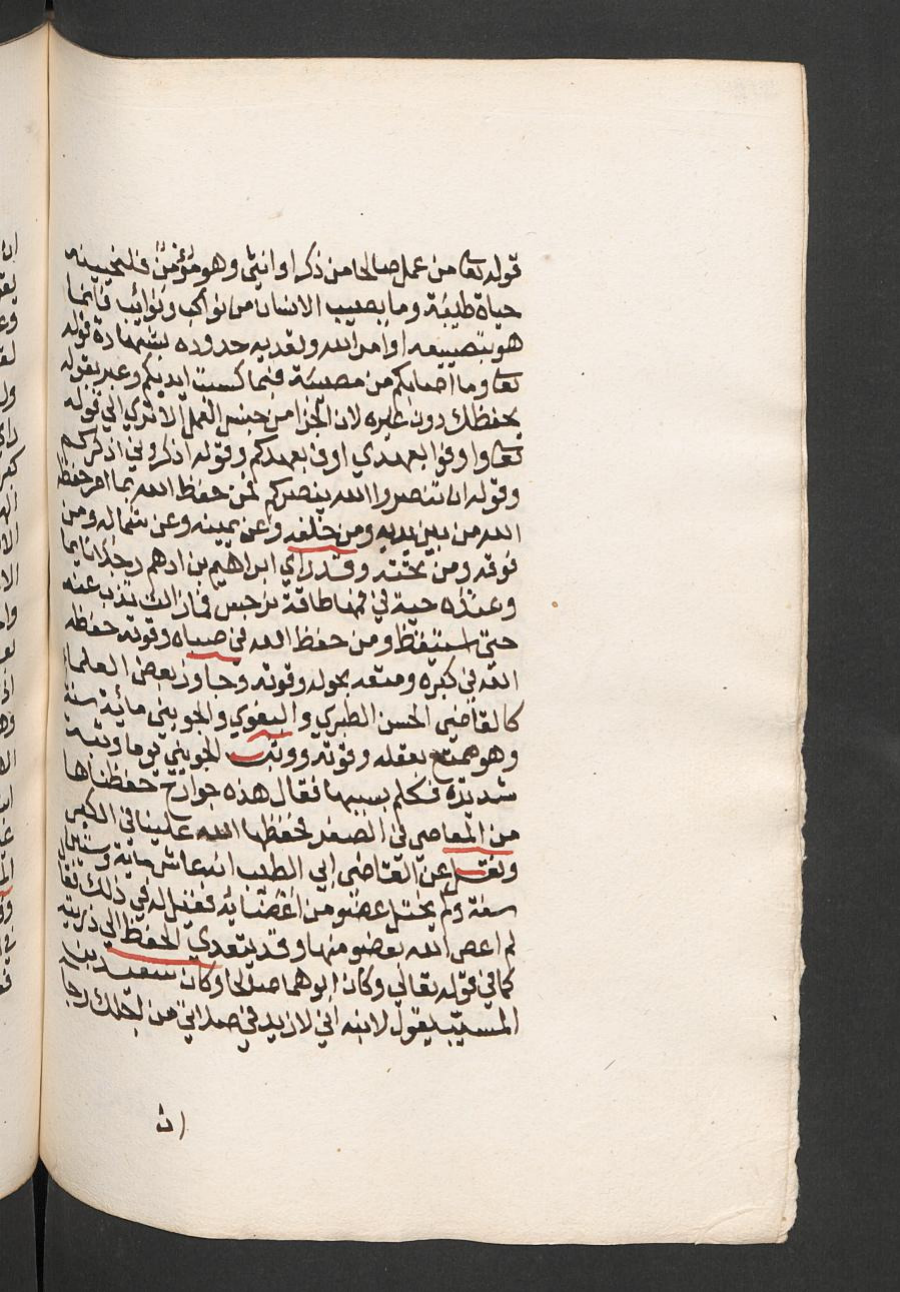 قوله تعا من عمل صالحا من ذكر او انثى وهو مؤمن فلنحيينه
حياة طيبة وما يصيب الانسان من نواكب ونوائب فانما
هو بتضييعه اوامر الله وتعديه حدوده بشهادة قوله
تعا وما اصابكم من مصيبة فبما كسبت ايديكم وعبر بقوله
يحفظك دون غيره لان الجزا من جنس العمل الا تري الي قوله
تعا واوفوا بعهدي اوف بعهدكم وقوله اذكروني اذكركم
وقوله ان تنصروا الله ينصركم فمن حفظ الله بما امر حفظه
الله من بين يديه ومن خلفه وعن يمينه وعن شماله ومن
فوقه ومن تحته وقد راي ابراهيم بن ادهم رجلا نايما
وعنده حية في فمها طاقة نرجس فما زالت تذب عنه
حتى استيقظ ومن حفظ الله في صباه وقوته حفظه
الله في كبره ومتعه بحوله وقوته وجاوز بعض العلماء
كالقاضي الحسن الطبري والبغوي والجويني مائية سنة
وهو ممتع بعقله وقوته ووثب الجويني يوما وثبة
شديدة فكلم بسببها فقال هذه جوارح حفظناها
من المعاصي في الصغر فحفظها الله علينا في الكبر
ونقل عن القاضى ابي الطيب انه عاش ماية وستين
سنة ولم يختل عضو من اعضايه فقيل له في ذلك فقال
لم اعص الله بعضو منها وقد يتعدي الحفظ الي ذريته
كما في قوله تعالي وكان ابوهما صالحا وكان سعيد بن
المسيب يقول لابنه اني لازيد في صلاتي من اجلك رجا
ان